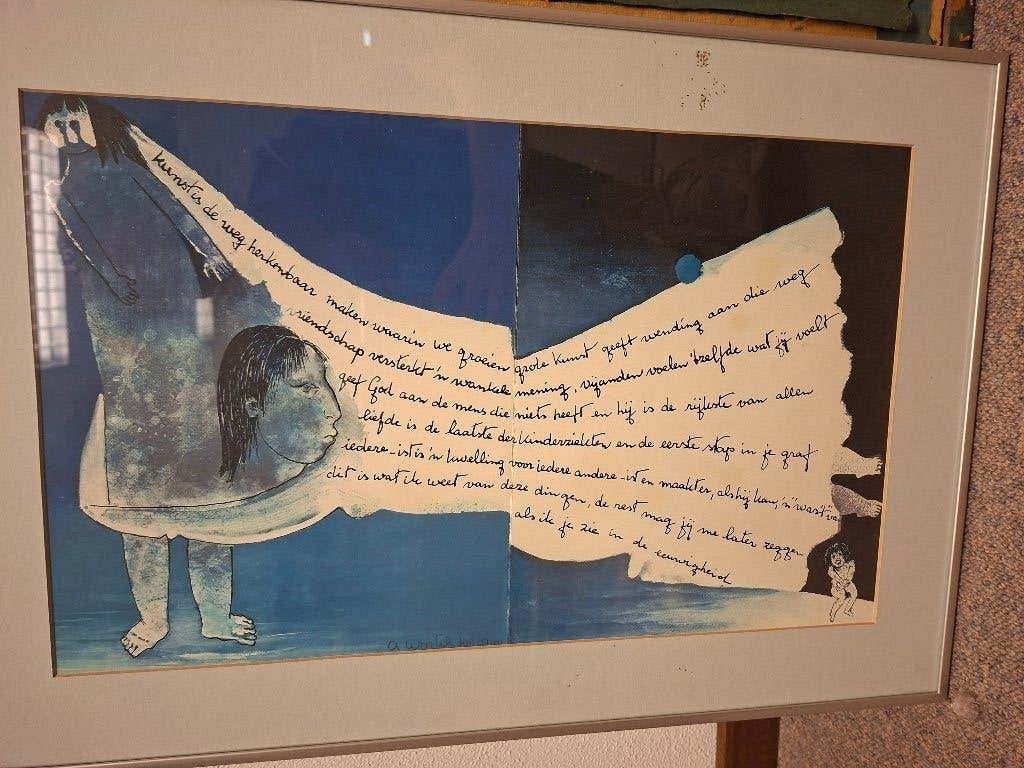 kunst is de weg herkenbaar maken waarin we groeien grote kunst geeft wending aan die weg
vriendschap versterkt 'n wankele mening, vijanden voelen 'tzelfde wat jij voelt
geef God aan de mens die niets heeft en hij is de rijkste van allen
liefde is de laatste der kinderziekten en de eerste stap in je graf
iedere -ist is 'n kwelling voor iedere andere -ist en maakt er, als hij kan, 'n
dit is wat ik weet van deze dingen, de rest mag jij me later zeggen
als ik je zie in de eeuwigheid